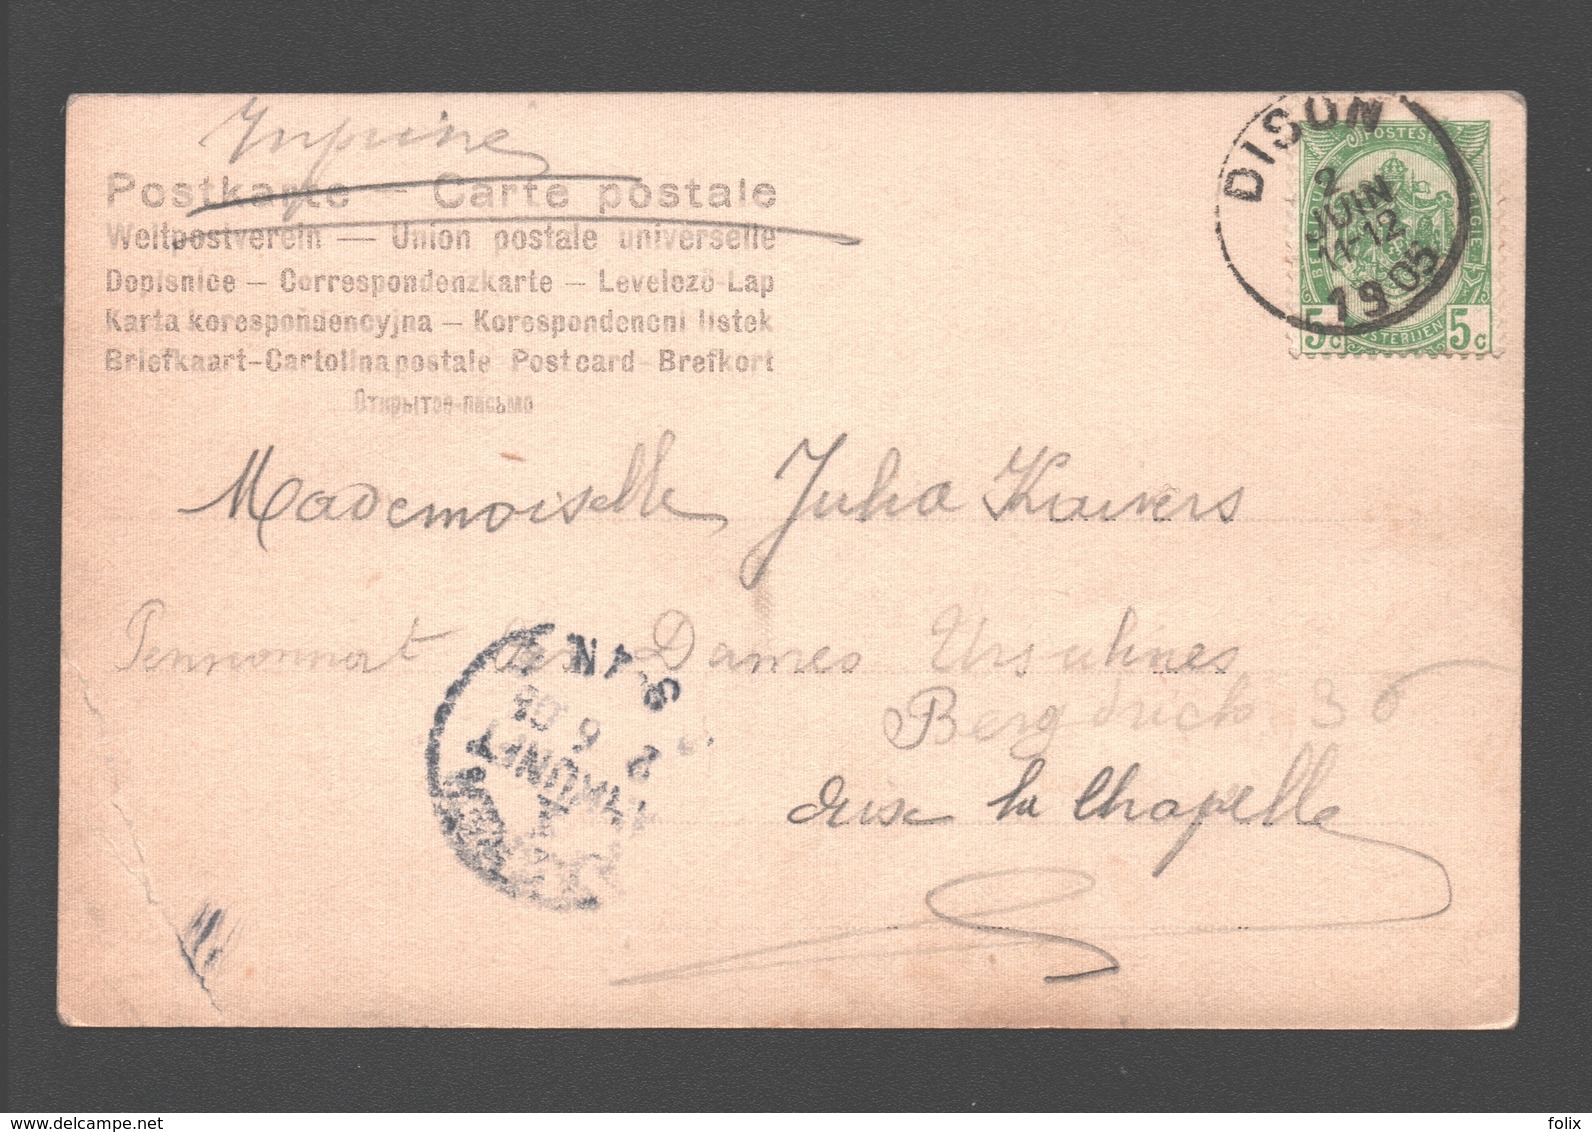 DISON
2
JUIN
11-12
1905
POSTES
BELGIQUE BELGIE
POSTERIJEN
5c 5c
Postkarte — Carte postale
Weltpostverein — Union postale universelle
Dopisnice — Correspondenzkarte — Levelező-Lap
Karta korespondencyjna — Korespondencni listek
Briefkaart-Cartolina postale Postcard-Brefkort
Открытое-письмо
Mademoiselle Julia Kaivers
Pensionnat des Dames Ursulines
Bergdrich 36
Aix la Chapelle
2 6 05
ANKUNFT
folix